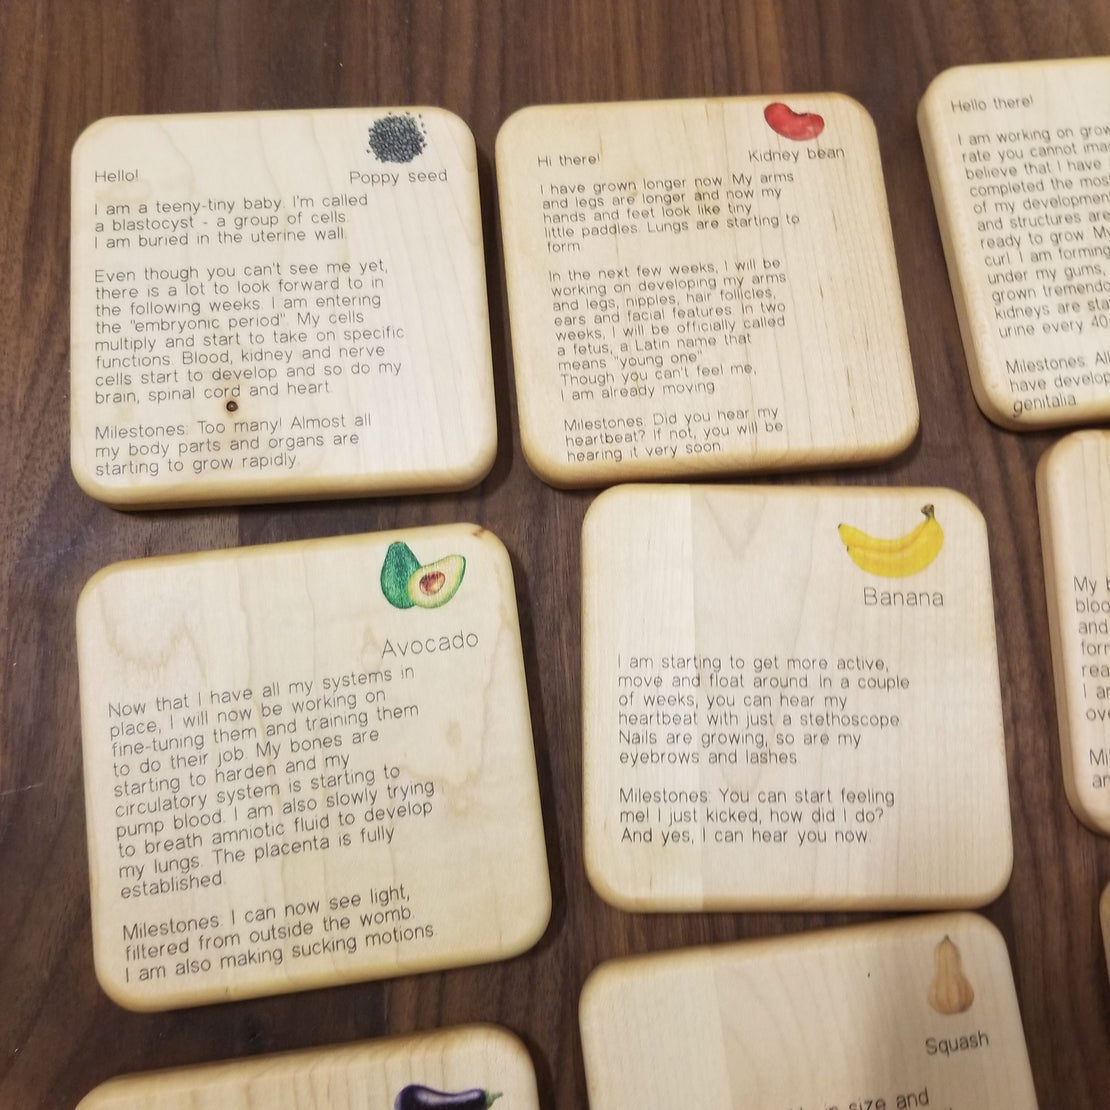 Hello!
Poppy seed
I am a teeny-tiny baby. I'm called
a blastocyst - a group of cells.
I am buried in the uterine wall.
Even though you can't see me yet,
there is a lot to look forward to in
the following weeks. I am entering
the "embryonic period". My cells
multiply and start to take on specific
functions. Blood, kidney and nerve
cells start to develop and so do my
brain, spinal cord and heart.
Milestones: Too many! Almost all
my body parts and organs are
starting to grow rapidly.
Hi there!
Kidney bean
I have grown longer now. My arms
and legs are longer and now my
hands and feet look like tiny
little paddles. Lungs are starting to
form.
In the next few weeks, I will be
working on developing my arms
and legs, nipples, hair follicles,
ears and facial features. In two
weeks, I will be officially called
a fetus, a Latin name that
means "young one".
Though you can't feel me,
I am already moving.
Milestones: Did you hear my
heartbeat? If not, you will be
hearing it very soon.
Hello there!
I am working on
rate you cannot
believe that I have
completed the
of my
and structures are
ready to grow. My
curl. I am forming
under my gums,
grown
kidneys are
urine every 40
Milestones: All
have
genitalia
Avocado
Now that I have all my systems in
place, I will now be working on
fine-tuning them and training them
to do their job. My bones are
starting to harden and my
circulatory system is starting to
pump blood. I am also slowly trying
to breath amniotic fluid to develop
my lungs. The placenta is fully
established.
Milestones: I can now see light,
filtered from outside the womb.
I am also making sucking motions.
Banana
I am starting to get more active,
move and float around. In a couple
of weeks, you can hear my
heartbeat with just a stethoscope.
Nails are growing, so are my
eyebrows and lashes.
Milestones: You can start feeling
me! I just kicked, how did I do?
And yes, I can hear you now.
My
and
I
Squash
size and